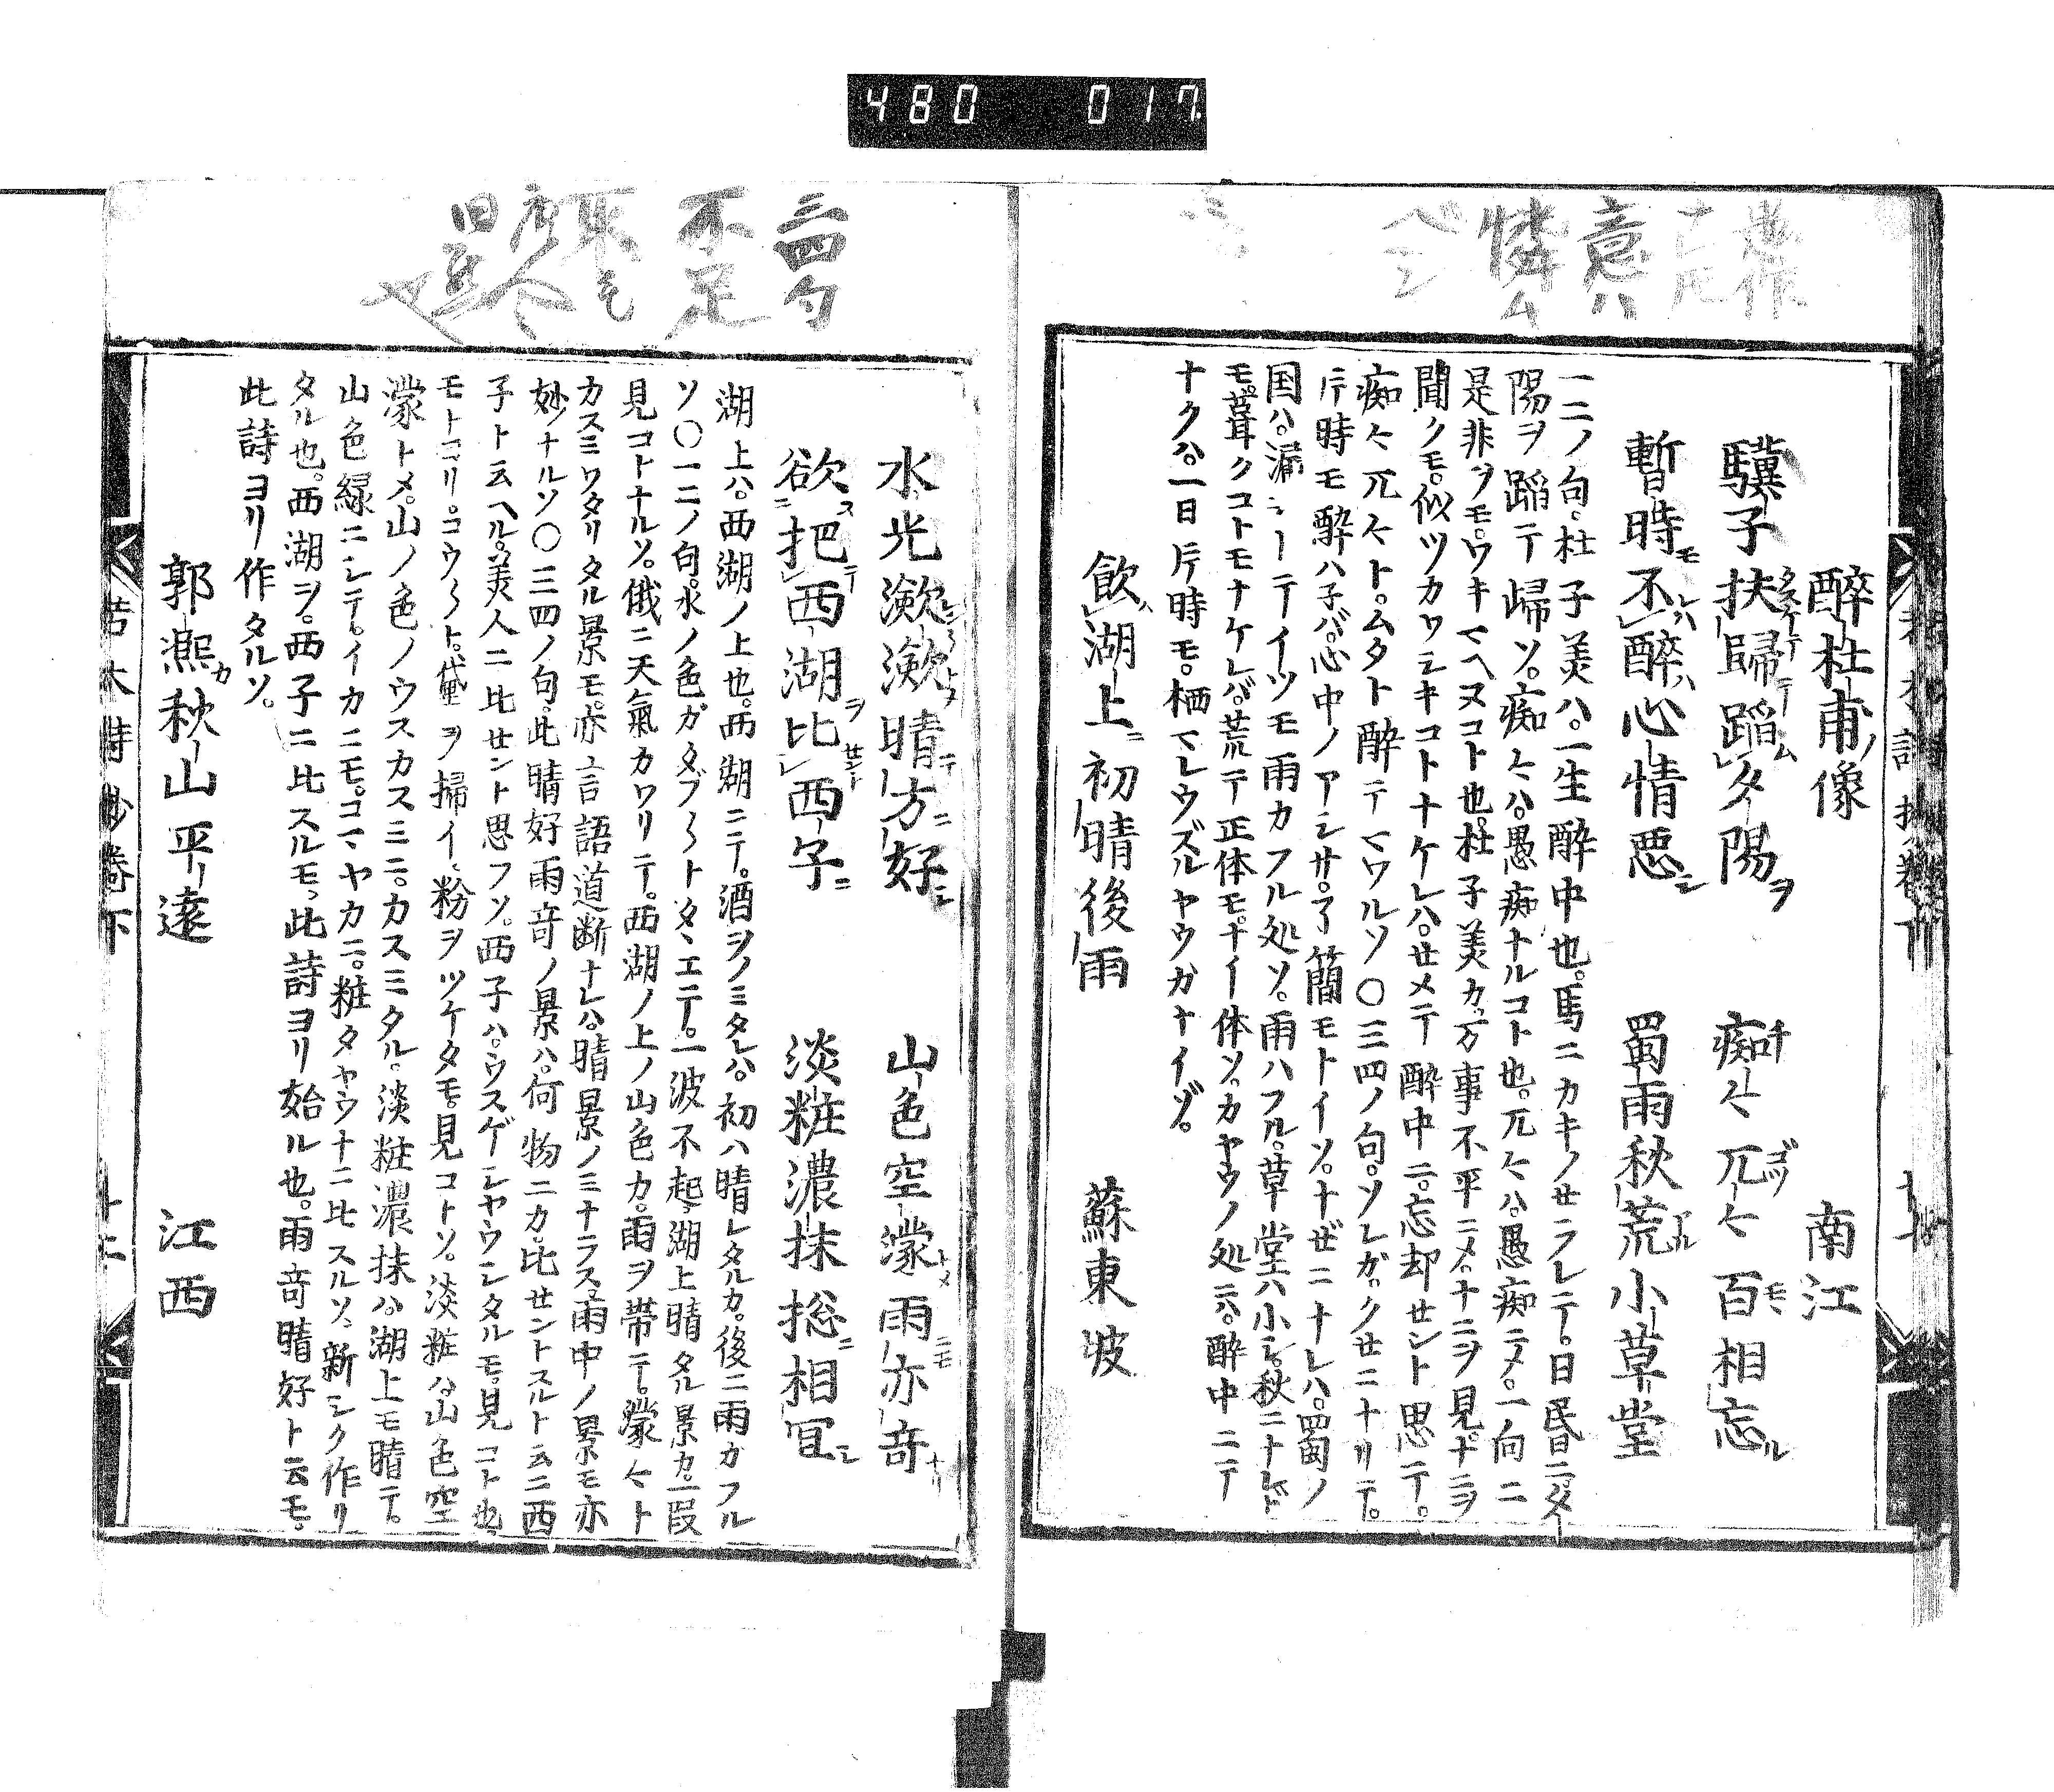 480 017
醉杜甫像 南江
驥子扶歸蹈夕陽 痴々兀々百相忘
暫時不醉心情悪 蜀雨秋荒小草堂
一二ノ句。杜子美ハ。一生醉中也。馬ニカキノせラレテ。日
陽ヲ蹈テ歸ソ。痴々ハ。愚痴ナルコト也。兀々ハ。愚痴ニメ。一向ニ
是非ヲモ。ワキマヘヌコト也。杜子美カ。万事不平ニメ。ナニヲ見ドニヲ
聞クモ。似ツカワシキコトナケレハ。せメテ醉中ニ。忘却せント思テ。
痴々兀々ト。ムタト醉テマワルソ〇三四ノ句。ソレガ。クせニナリテ。
片時モ醉ハ子バ。心中ノアシサ。了簡モトイソ。ナぜニナレハ。蜀ノ
国ハ。漏ニーテイツモ雨カフル処ソ。雨ハフル。草堂ハ小シ。秋ニナレド
モ。葺クコトモナケレバ。荒テ正体モ。ナイ体ソ。カヤウノ処ニハ。醉中ニテ
ナクハ。一日片時モ。栖マレウズルヤウガナイゾ。
飲湖上初晴後雨 蘇東坡
三四句
不足
取も
唐人
旧
水光瀲瀲晴方好 山色空濛雨亦奇
欲把西湖比西子 淡粧濃抹総相冝
湖上ハ。西湖ノ上也。西湖ニテ。酒ヲノミタレハ。初ハ晴レタルカ。後ニ雨カフル
ソ〇一二ノ句。水ノ色ガタブ〱トタヽエテ。一波不起。湖上晴タル景カ。一段
見コトナルソ。俄ニ天氣カワリテ。西湖ノ上ノ山色カ。雨ヲ帯テ。濛々ト
カスミワタリタル景モ。亦言語道断ナレハ。晴景ノミナラス。雨中ノ景モ亦
妙ナルソ〇三四ノ句。此晴好雨奇ノ景ハ。何物ニカ。比せントスルト云ニ西
子ト云ヘル。美人ニ比せント思フソ。西子ハ。ウスゲシヤウシタルモ。見コト也。
モトヨリ。コウ〱ト。黛ヲ掃イ。粉ヲツケタモ。見コトソ。淡粧ハ。山色空
濛トメ。山ノ色ノウスカスミニ。カスミタル。淡粧濃抹ハ。湖上モ晴テ。
山色緑ニシテ。イカニモ。コマヤカニ。粧タヤウナニ比スルソ。新シク作リ
タル也。西湖ヲ。西子ニ比スルモ。此詩ヨリ始ル也。雨奇晴好ト云モ。
此詩ヨリ作タルソ。
郭熈秋山平遠 江西